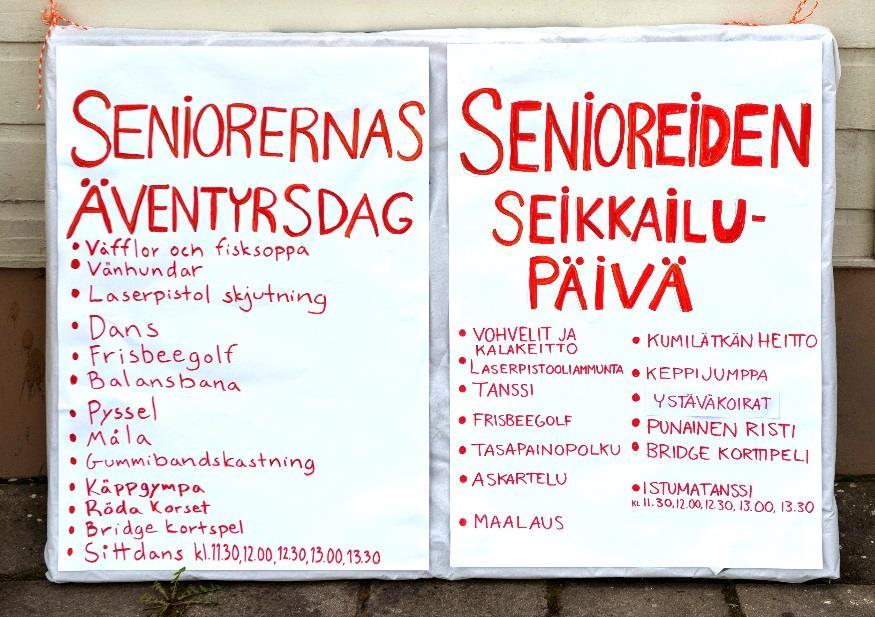 SENIORERNAS
ÄVENTYRSDAG
• Våfflor och fisksoppa
• Vänhundar
• Laserpistol skjutning
• Dans
• Frisbeegolf
• Balansbana
• Pyssel
• Måla
• Gummibandskastning
• Käppgympa
• Röda Korset
• Bridge kortspel
• Sittdans kl.11.30,12.00,12.30,13.00,13.30
SENIOREIDEN
SEIKKAILU-
PÄIVÄ
• VOHVELIT JA
KALAKEITTO
• LASERPISTOOLIAMMUNTA
• TANSSI
• FRISBEEGOLF
• TASAPAINOPOLKU
• ASKARTELU
• MAALAUS
• KUMILÄTKÄN HEITTO
• KEPPIJUMPPA
• YSTÄVÄKOIRAT
• PUNAINEN RISTI
• BRIDGE KORTTIPELI
• ISTUMATANSSI
KL 11.30, 12.00, 12.30, 13.00, 13.30